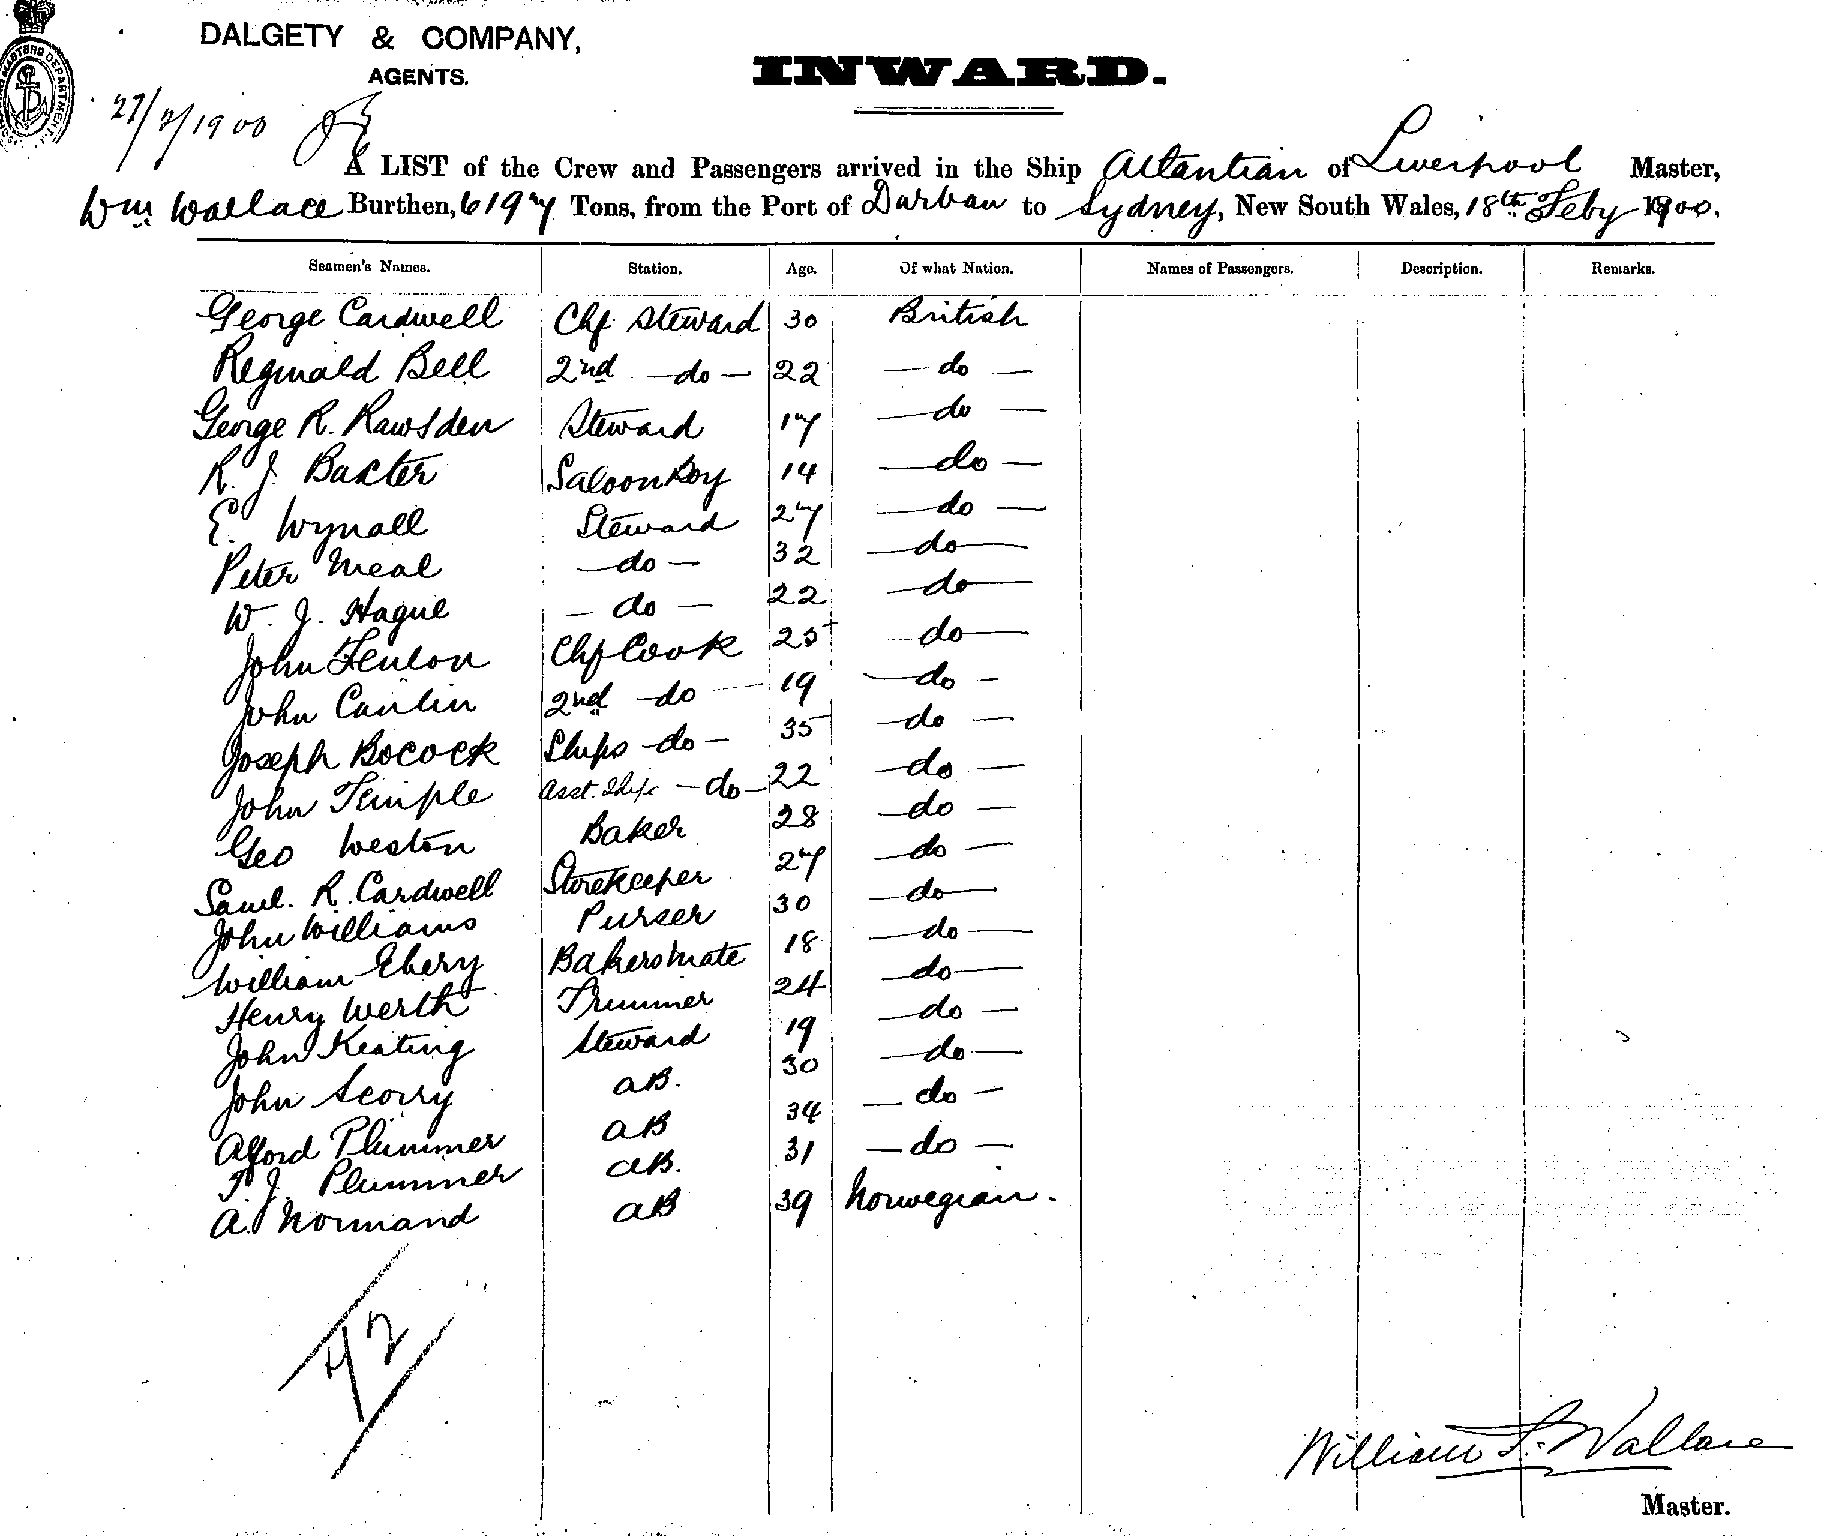 DALGETY & COMPANY,
AGENTS.
INWARD.
27/2/1900
A LIST of the Crew and Passengers arrived in the Ship Altantian of Liverpool Master,
Wm Wallace Burthen, 6197 Tons, from the Port of Durban to Sydney, New South Wales, 18th Feby 1900.
Seamen's Names. Station. Age. Of what Nation. Names of Passengers. Description. Remarks.
George Cardwell Chf Steward 30 British
Reginald Bell 2nd —do— 22 —do—
George R. Rawsden Steward 17 —do—
R. J. Baxter Saloon Boy 14 —do—
E. Wynall Steward 27 —do—
Peter Meal —do— 32 —do—
W. J. Hague —do— 22 —do—
John Fenlon Chf Cook 25 —do—
John Cantin 2nd —do— 19 —do—
Joseph Bocock Ships —do— 35 —do—
John Temple Asst. Ships —do— 22 —do—
Geo Weston Baker 28 —do—
Saml. R. Cardwell Storekeeper 27 —do—
John Williams Purser 30 —do—
William Ebery Bakers Mate 18 —do—
Henry Werth Trimmer 24 —do—
John Keating Steward 19 —do—
John Scorry AB. 30 —do—
Alford Plummer AB 34 —do—
T. J. Plummer AB. 31 —do—
A. Normand AB 39 Norwegian.
42
William F. Wallace
Master.